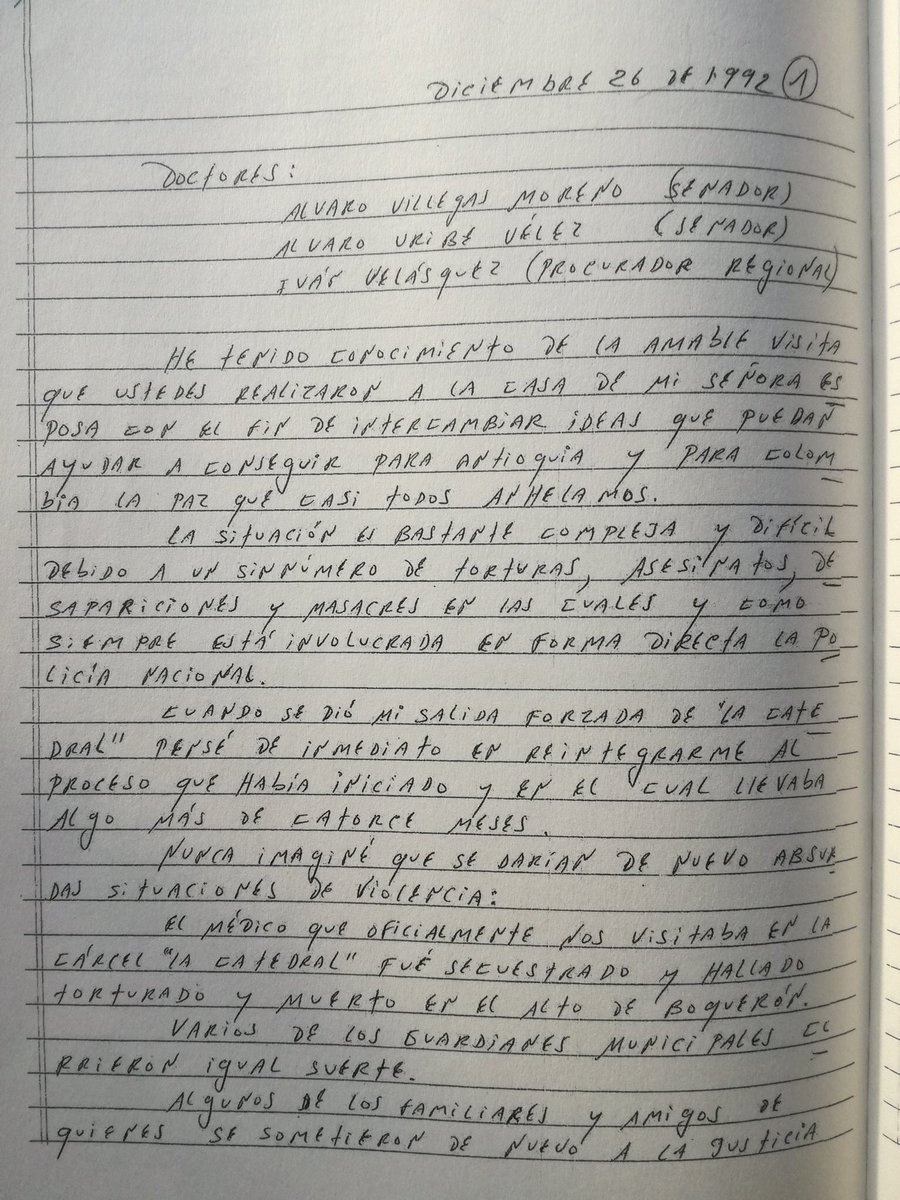 DICIEMBRE 26 DE 1992 1
DOCTORES:
ALVARO VILLEGAS MORENO (SENADOR)
ALVARO URIBE VÉLEZ (SENADOR)
IVÁN VELÁSQUEZ (PROCURADOR REGIONAL)
HE TENIDO CONOCIMIENTO DE LA AMABLE VISITA
QUE USTEDES REALIZARON A LA CASA DE MI SEÑORA ES
POSA CON EL FIN DE INTERCAMBIAR IDEAS QUE PUEDAN
AYUDAR A CONSEGUIR PARA ANTIOQUIA Y PARA COLOM
BIA LA PAZ QUE CASI TODOS ANHELAMOS.
LA SITUACIÓN ES BASTANTE COMPLEJA Y DIFÍCIL
DEBIDO A UN SINNÚMERO DE TORTURAS, ASESINATOS, DE
SAPARICIONES Y MASACRES EN LAS CUALES Y COMO
SIEMPRE ESTÁ INVOLUCRADA EN FORMA DIRECTA LA PO
LICÍA NACIONAL.
CUANDO SE DIÓ MI SALIDA FORZADA DE "LA CATE
DRAL" PENSÉ DE INMEDIATO EN REINTEGRARME AL
PROCESO QUE HABÍA INICIADO Y EN EL CUAL LLEVABA
ALGO MÁS DE CATORCE MESES.
NUNCA IMAGINÉ QUE SE DARÍAN DE NUEVO ABSUR
DAS SITUACIONES DE VIOLENCIA:
EL MÉDICO QUE OFICIALMENTE NOS VISITABA EN LA
CÁRCEL "LA CATEDRAL" FUÉ SECUESTRADO Y HALLADO
TORTURADO Y MUERTO EN EL ALTO DE BOQUERÓN.
VARIOS DE LOS GUARDIANES MUNICIPALES
RRIERON IGUAL SUERTE.
ALGUNOS DE LOS FAMILIARES Y AMIGOS DE
QUIENES SE SOMETIERON DE NUEVO A LA JUSTICIA